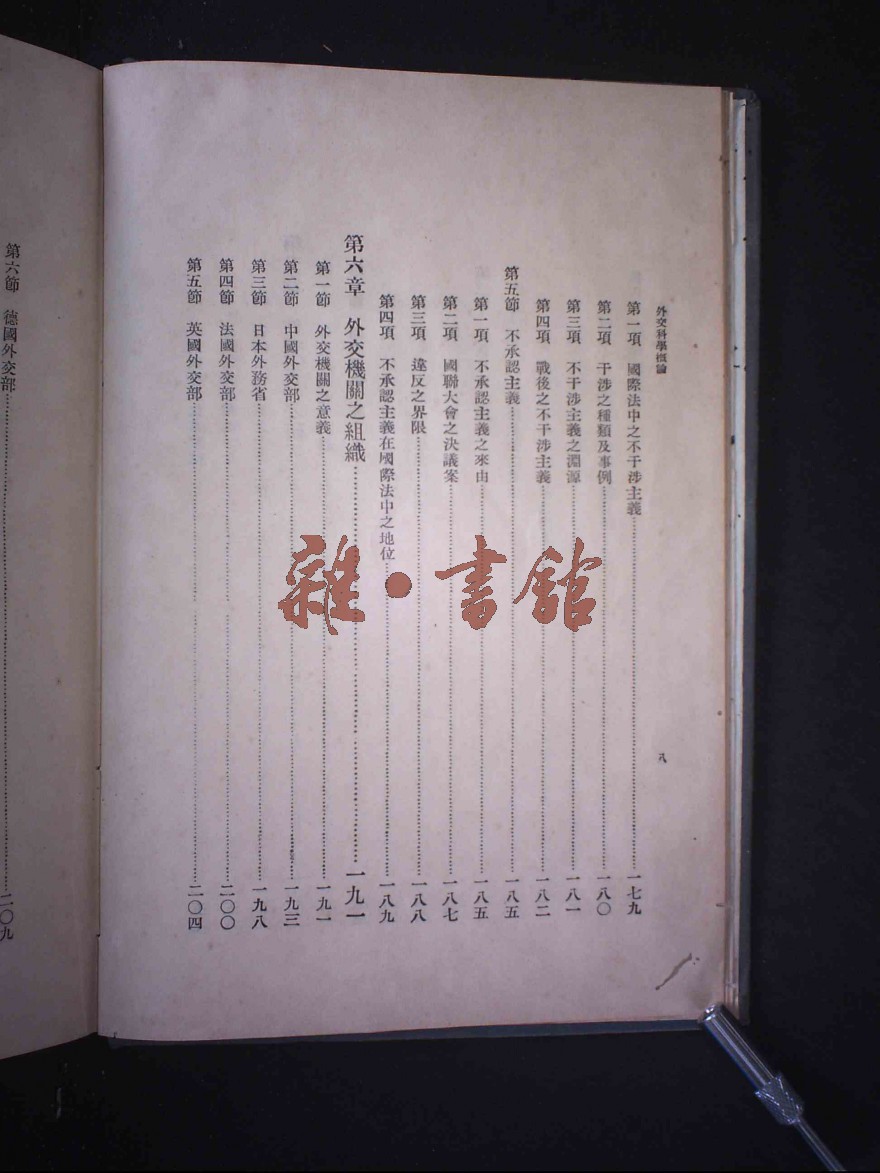 外交科學概論
八
第一項 國際法中之不干涉主義……一七九
第二項 干涉之種類及事例……一八〇
第三項 不干涉主義之淵源……一八一
第四項 戰後之不干涉主義……一八二
第五節 不承認主義……一八五
第一項 不承認主義之來由……一八五
第二項 國聯大會之決議案……一八七
第三項 違反之界限……一八八
第四項 不承認主義在國際法中之地位……一八九
第六章 外交機關之組織……一九一
第一節 外交機關之意義……一九一
第二節 中國外交部……一九三
第三節 日本外務省……一九八
第四節 法國外交部……二〇〇
第五節 英國外交部……二〇四
第六節 德國外交部……二〇九
雜·書館